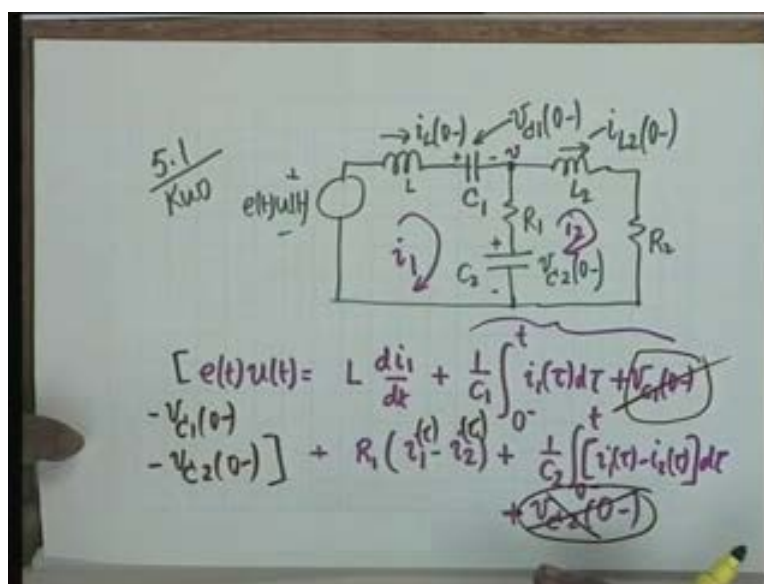 5.1
Kuo
→ i_L(0-)
v_C1(0-)
→ i_L2(0-)
+ - v
L
C_1
L_2
+
e(t)u(t)
-
R_1
i_1
i_2
R_2
+
C_2
v_C2(0-)
-
[ e(t)u(t) = L di_1/dt + 1/C_1 ∫_0-^t i_1(τ)dτ + v_C1(0-)
- v_C1(0-)
- v_C2(0-) ] + R_1 ( i_1(t) - i_2(t) ) + 1/C_2 ∫_0-^t [i_1(τ) - i_2(τ)] dτ
+ v_C2(0-)